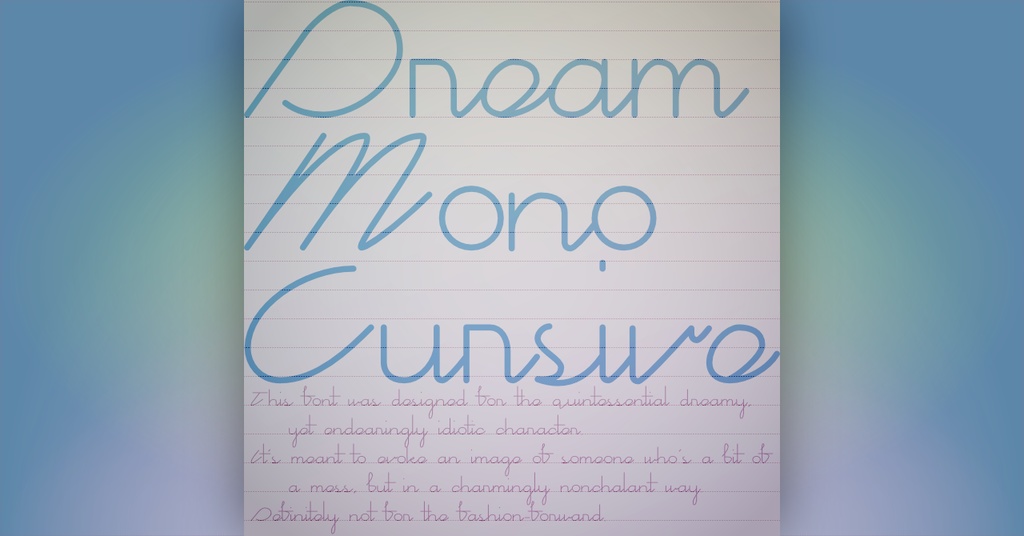 Dream
Mono
Cursive
This font was designed for the quintessential dreamy,
yet endearingly idiotic character.
It's meant to evoke an image of someone who's a bit of
a mess, but in a charmingly nonchalant way.
Definitely not for the fashion-forward.